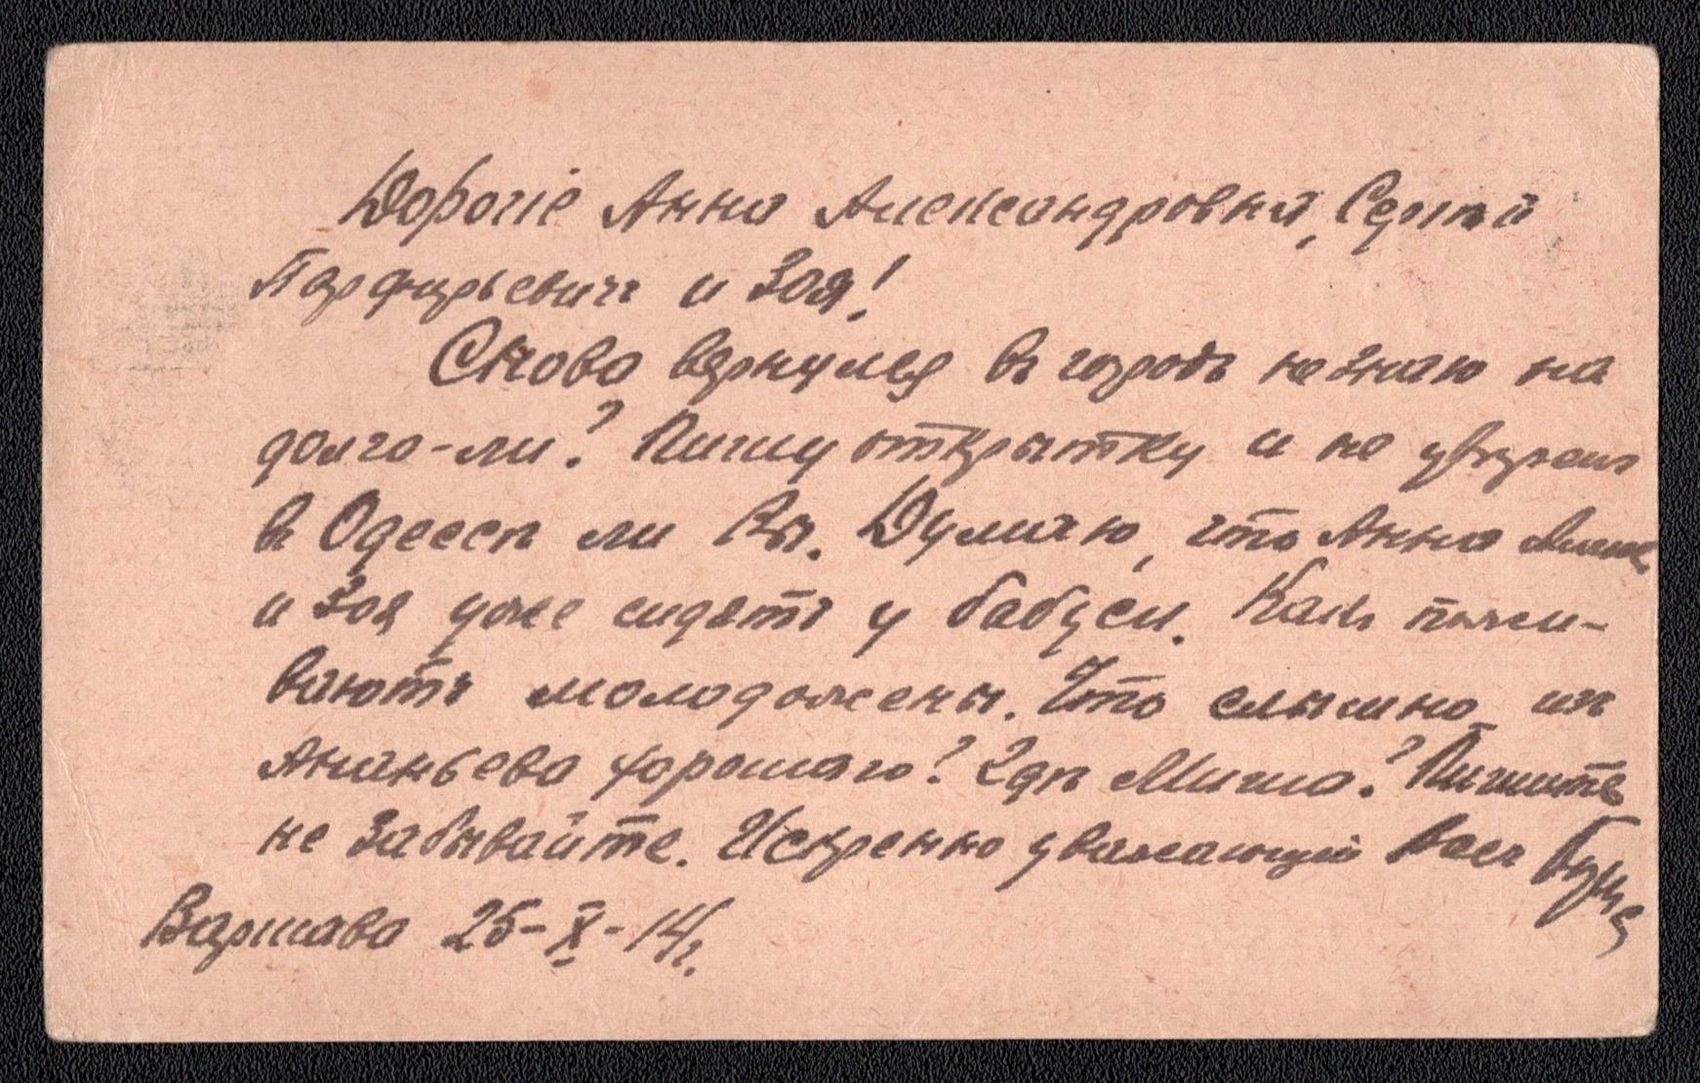 Дорогіе Анна Александровна, Сергѣй
Парфирьевичъ и Зоя!
Снова вернулся въ городъ не знаю на
долго-ли? Пишу открытку и не увѣренъ
въ Одессѣ ли Вы. Думаю, что Анна
и Зоя уже сидятъ у бабуси. Какъ пожи-
ваютъ молодожены. Что слышно изъ
Ананьева хорошаго? Гдѣ Миша? Пишите
не забывайте. Искренно уважающій Васъ
Варшава 25-X-14г.